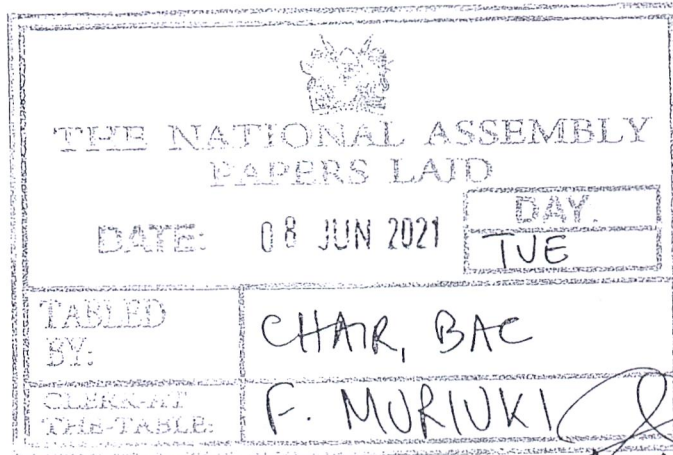 THE NATIONAL ASSEMBLY
PAPERS LAID
DATE: 08 JUN 2021 DAY.
TUE
TABLED BY: CHAIR, BAC
CLERK-AT THE-TABLE: F. MURIUKI